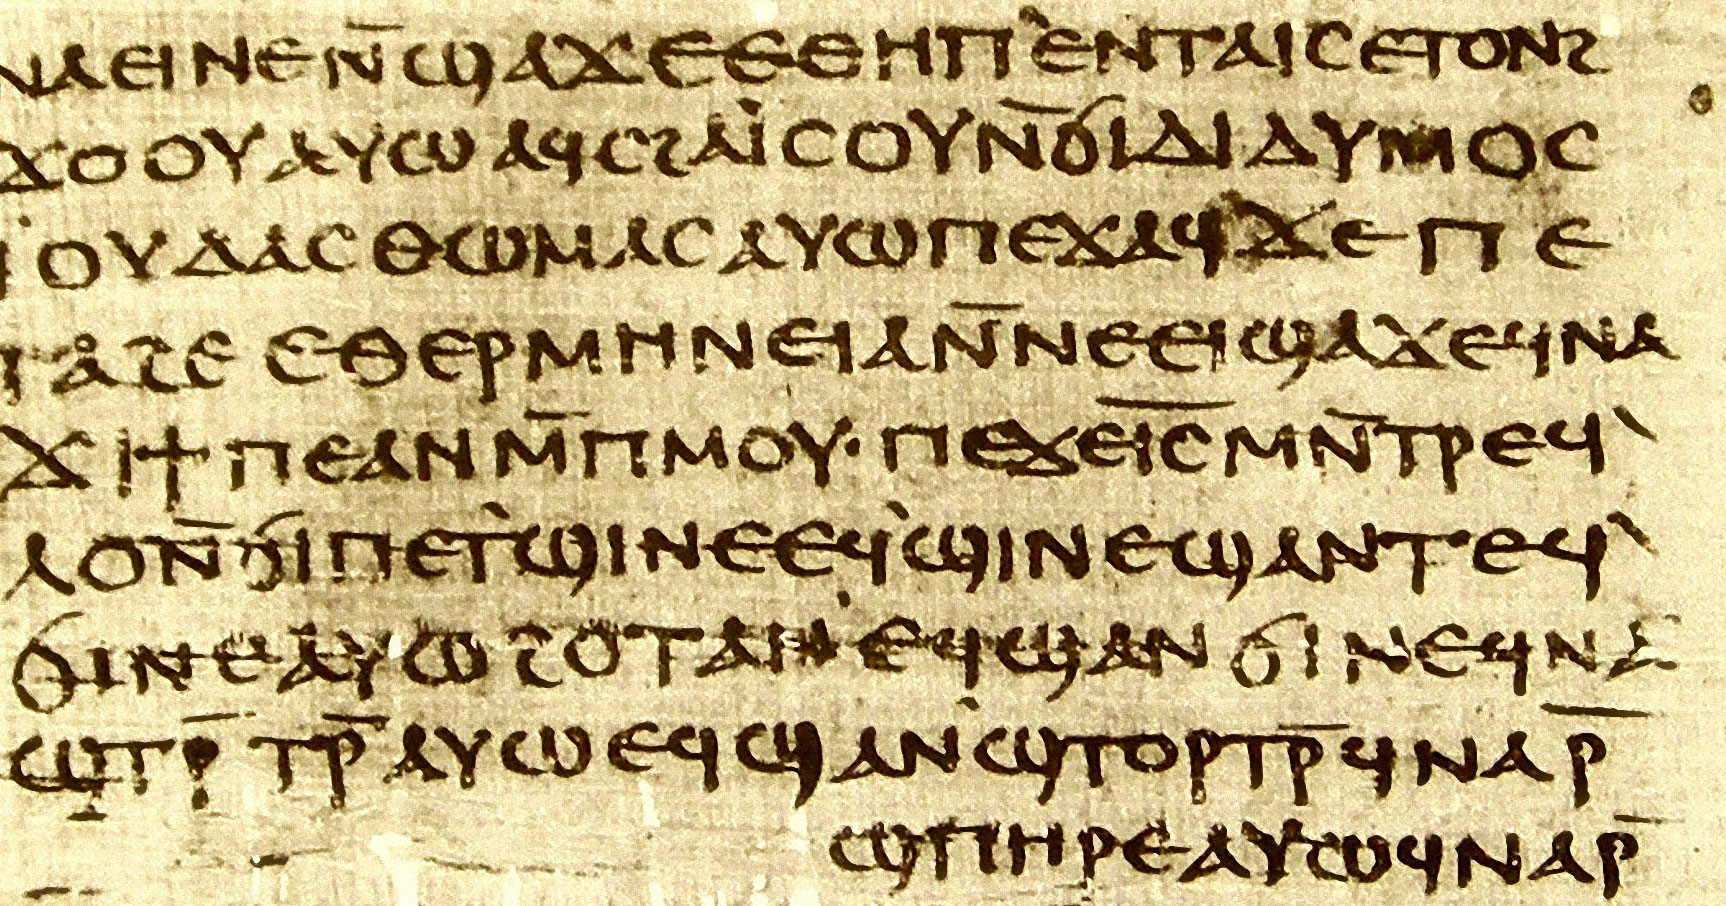 ⲛⲁⲉⲓⲛⲉⲛ̄ϣⲁϫⲉⲉⲑⲏⲡ`ⲉⲛⲧⲁⲓⲥⲉⲧⲟⲛϩ
ϫⲟⲟⲩⲁⲩⲱⲁϥⲥϩⲁⲓ̈ⲥⲟⲩⲛ̄ϭⲓⲇⲓⲇⲩⲙⲟⲥ
ⲓ̈ⲟⲩⲇⲁⲥⲑⲱⲙⲁⲥⲁⲩⲱⲡⲉϫⲁϥϫⲉⲡⲉ
ⲧⲁϩⲉⲉⲑⲉⲣⲙⲏⲛⲉⲓⲁⲛ̄ⲛⲉⲉⲓϣⲁϫⲉϥⲛⲁ
ϫⲓϯⲡⲉⲁⲛⲙ̄ⲡⲙⲟⲩ·ⲡⲉϫⲉⲓ̅ⲥ̅ⲙⲛ̄ⲧⲣⲉϥ`
ⲗⲟⲛ̄ϭⲓⲡⲉⲧ`ϣⲓⲛⲉⲉϥ`ϣⲓⲛⲉϣⲁⲛⲧⲉϥ`
ϭⲓⲛⲉⲁⲩⲱϩⲟⲧⲁⲛ`ⲉϥϣⲁⲛϭⲓⲛⲉϥⲛⲁ
ϣⲧⲣ̄ⲧⲣ̄ⲁⲩⲱⲉϥϣⲁⲛ`ϣⲧⲟⲣⲧⲣ̄ϥⲛⲁⲣ̄
ϣⲡⲏⲣⲉⲁⲩⲱϥⲛⲁⲣ̄